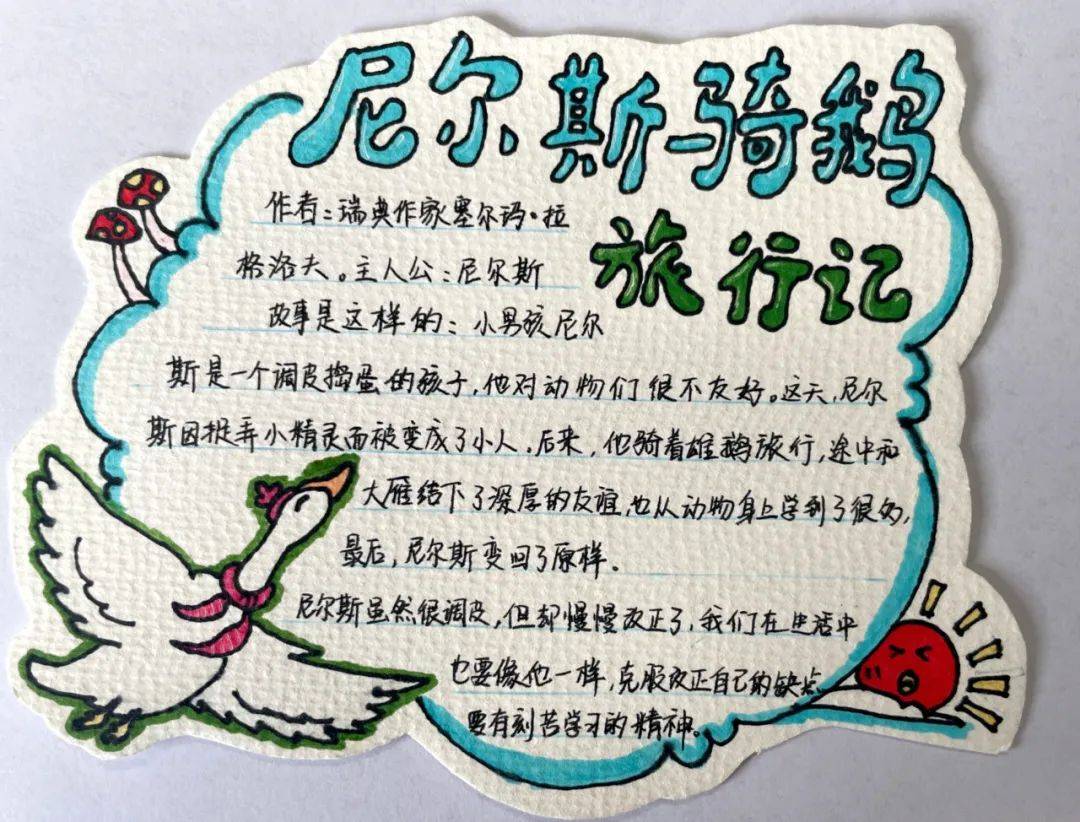 尼尔斯骑鹅
旅行记
作者：瑞典作家塞尔玛·拉
格洛夫。主人公：尼尔斯
故事是这样的：小男孩尼尔
斯是一个调皮捣蛋的孩子，他对动物们很不友好。这天，尼尔
斯因捉弄小精灵而被变成了小人。后来，他骑着雄鹅旅行，途中和
大雁结下了深厚的友谊，也从动物身上学到了很多，
最后，尼尔斯变回了原样。
尼尔斯虽然很调皮，但却慢慢改正了，我们在生活中
也要像他一样，克服改正自己的缺点
要有刻苦学习的精神。